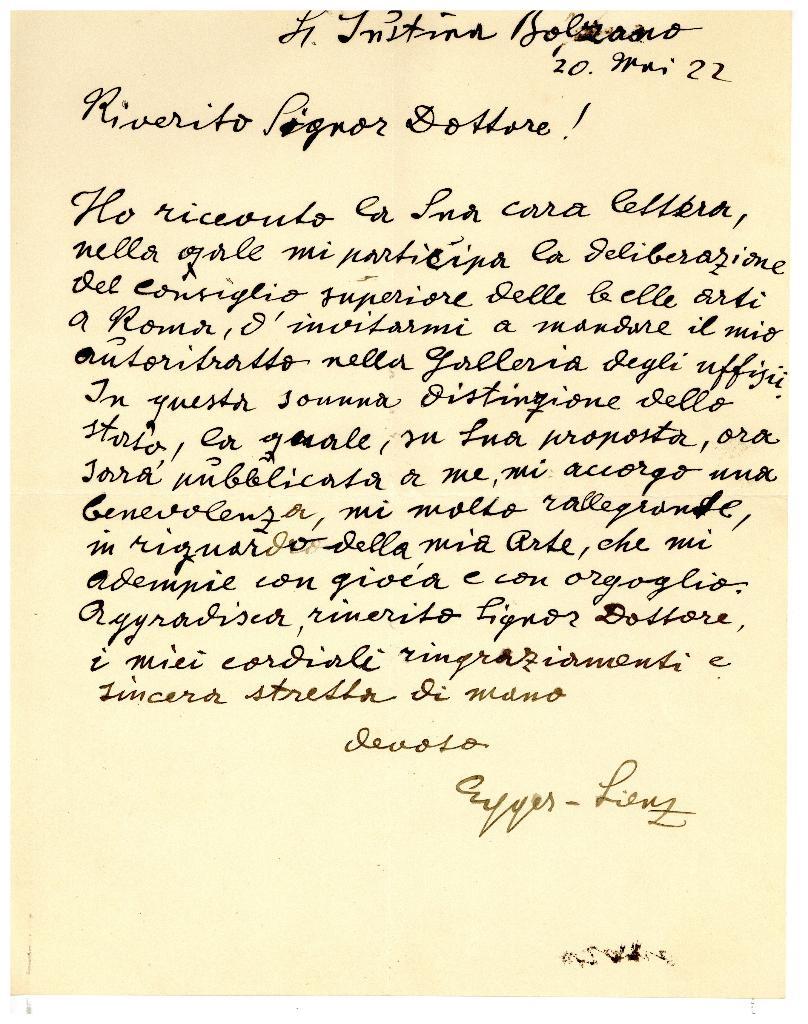 St. Justina Bolzano
20. Mai 22
Riverito Signor Dottore!
Ho ricevuto la Sua cara lettera,
nella quale mi participa la deliberazione
del consiglio superiore delle belle arti
a Roma, d'invitarmi a mandare il mio
autoritratto nella Galleria degli uffizii.
In questa somma distinzione dello
stato, la quale, su Sua proposta, ora
sarà pubblicata a me, mi accorgo una
benevolenza, mi molto rallegrande,
in riguardo della mia Arte, che mi
adempie con gioia e con orgoglio.
Aggradisca, riverito Signor Dottore,
i miei cordiali ringraziamenti e
sincera stretta di mano
devoto
Egger-Lienz